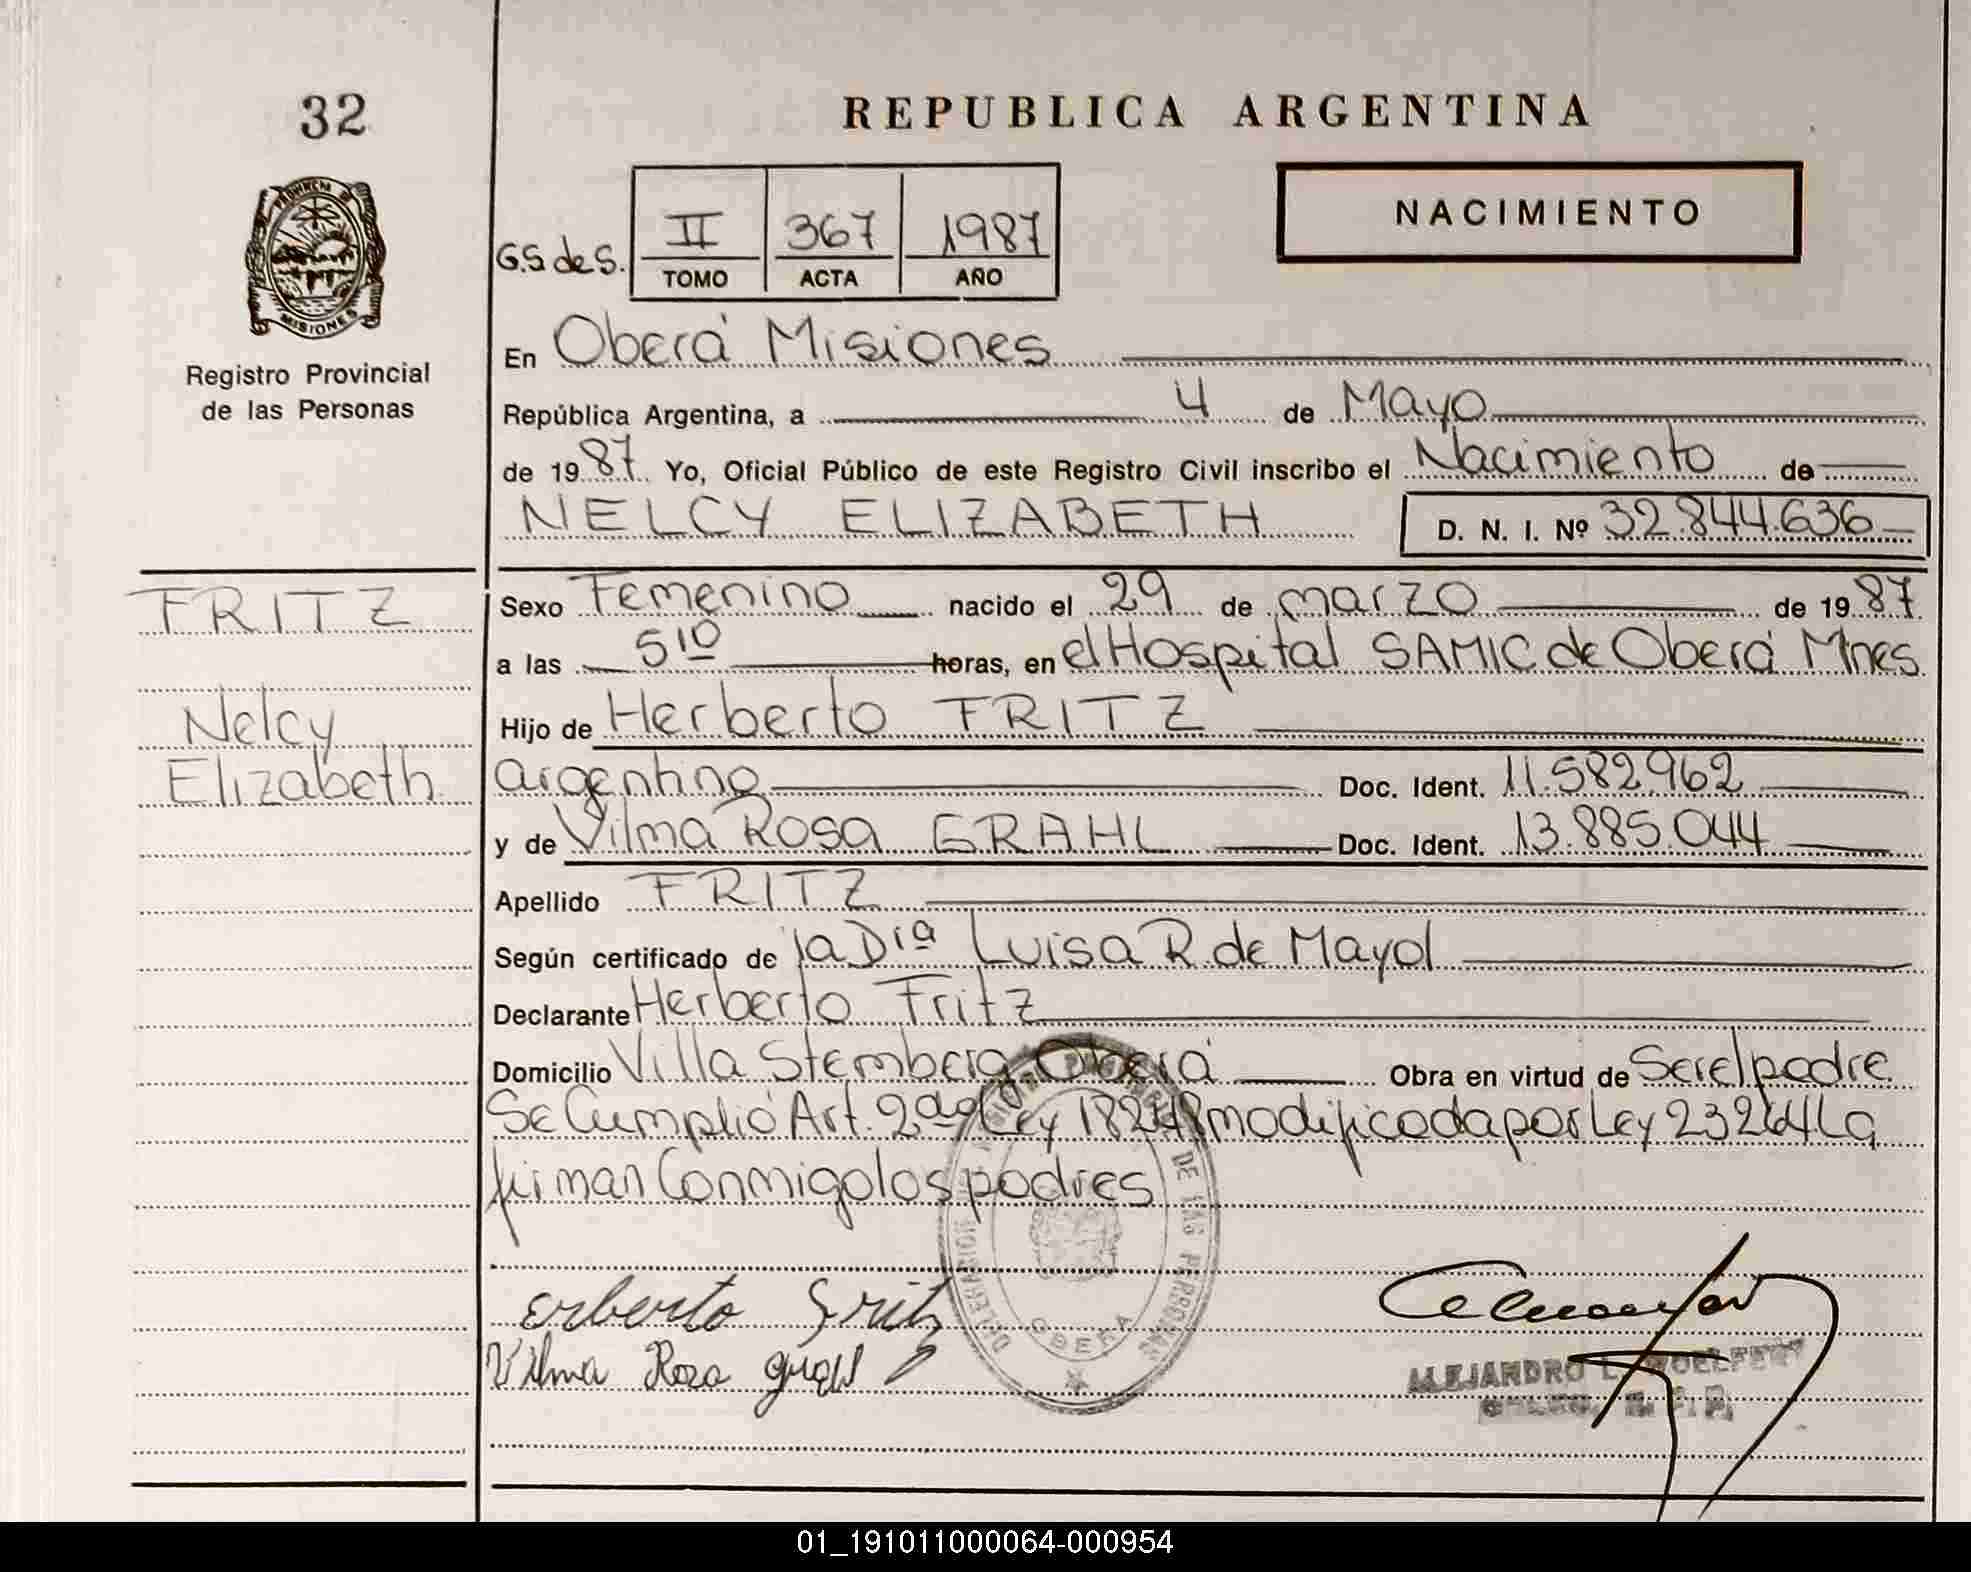 32
REPUBLICA ARGENTINA
NACIMIENTO
PROVINCIA DE
MISIONES
Registro Provincial
de las Personas
G.S. de S.
II 367 1987
TOMO ACTA AÑO
En Oberá Misiones
República Argentina, a 4 de Mayo
de 1987. Yo, Oficial Público de este Registro Civil inscribo el Nacimiento de
NELCY ELIZABETH D. N. I. Nº 32.844.636
FRITZ
Nelcy
Elizabeth
Sexo Femenino nacido el 29 de marzo de 1987.
a las 5 10 horas, en el Hospital SAMIC de Oberá Mnes.
Hijo de Herberto FRITZ
argentino Doc. Ident. 11.582962
y de Vilma Rosa GRAHL Doc. Ident. 13.885.044
Apellido FRITZ
Según certificado de la Dra Luisa R. de Mayol
Declarante Herberto Fritz
Domicilio Villa Stemberg Oberá Obra en virtud de Ser el padre
Se Cumplió Art. 2º de Ley 18248 modificada por Ley 23264 La
firman Conmigo los padres
DE LAS PERSONAS
DELEGACION
OBERA
Erberto Fritz
Vilma Rosa Grahl
ALEJANDRO
01_191011000064-000954